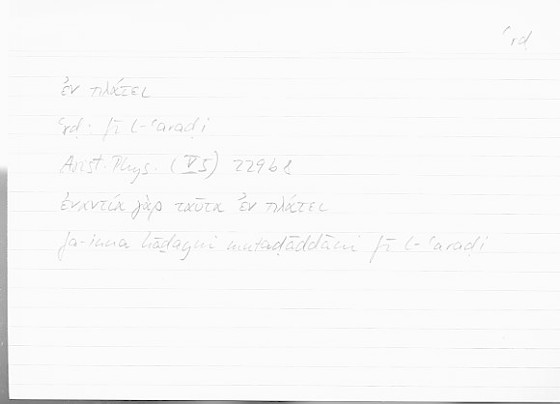 ʿrḍ
ἐν πλάτει
ʿrḍ. fī l-ʿaraḍi
Arist. Phys. (V 5) 229b8
ἐναντία γὰρ ταῦτα ἐν πλάτει
fa-inna hāḏayni mutaḍāddāni fī l-ʿaraḍi